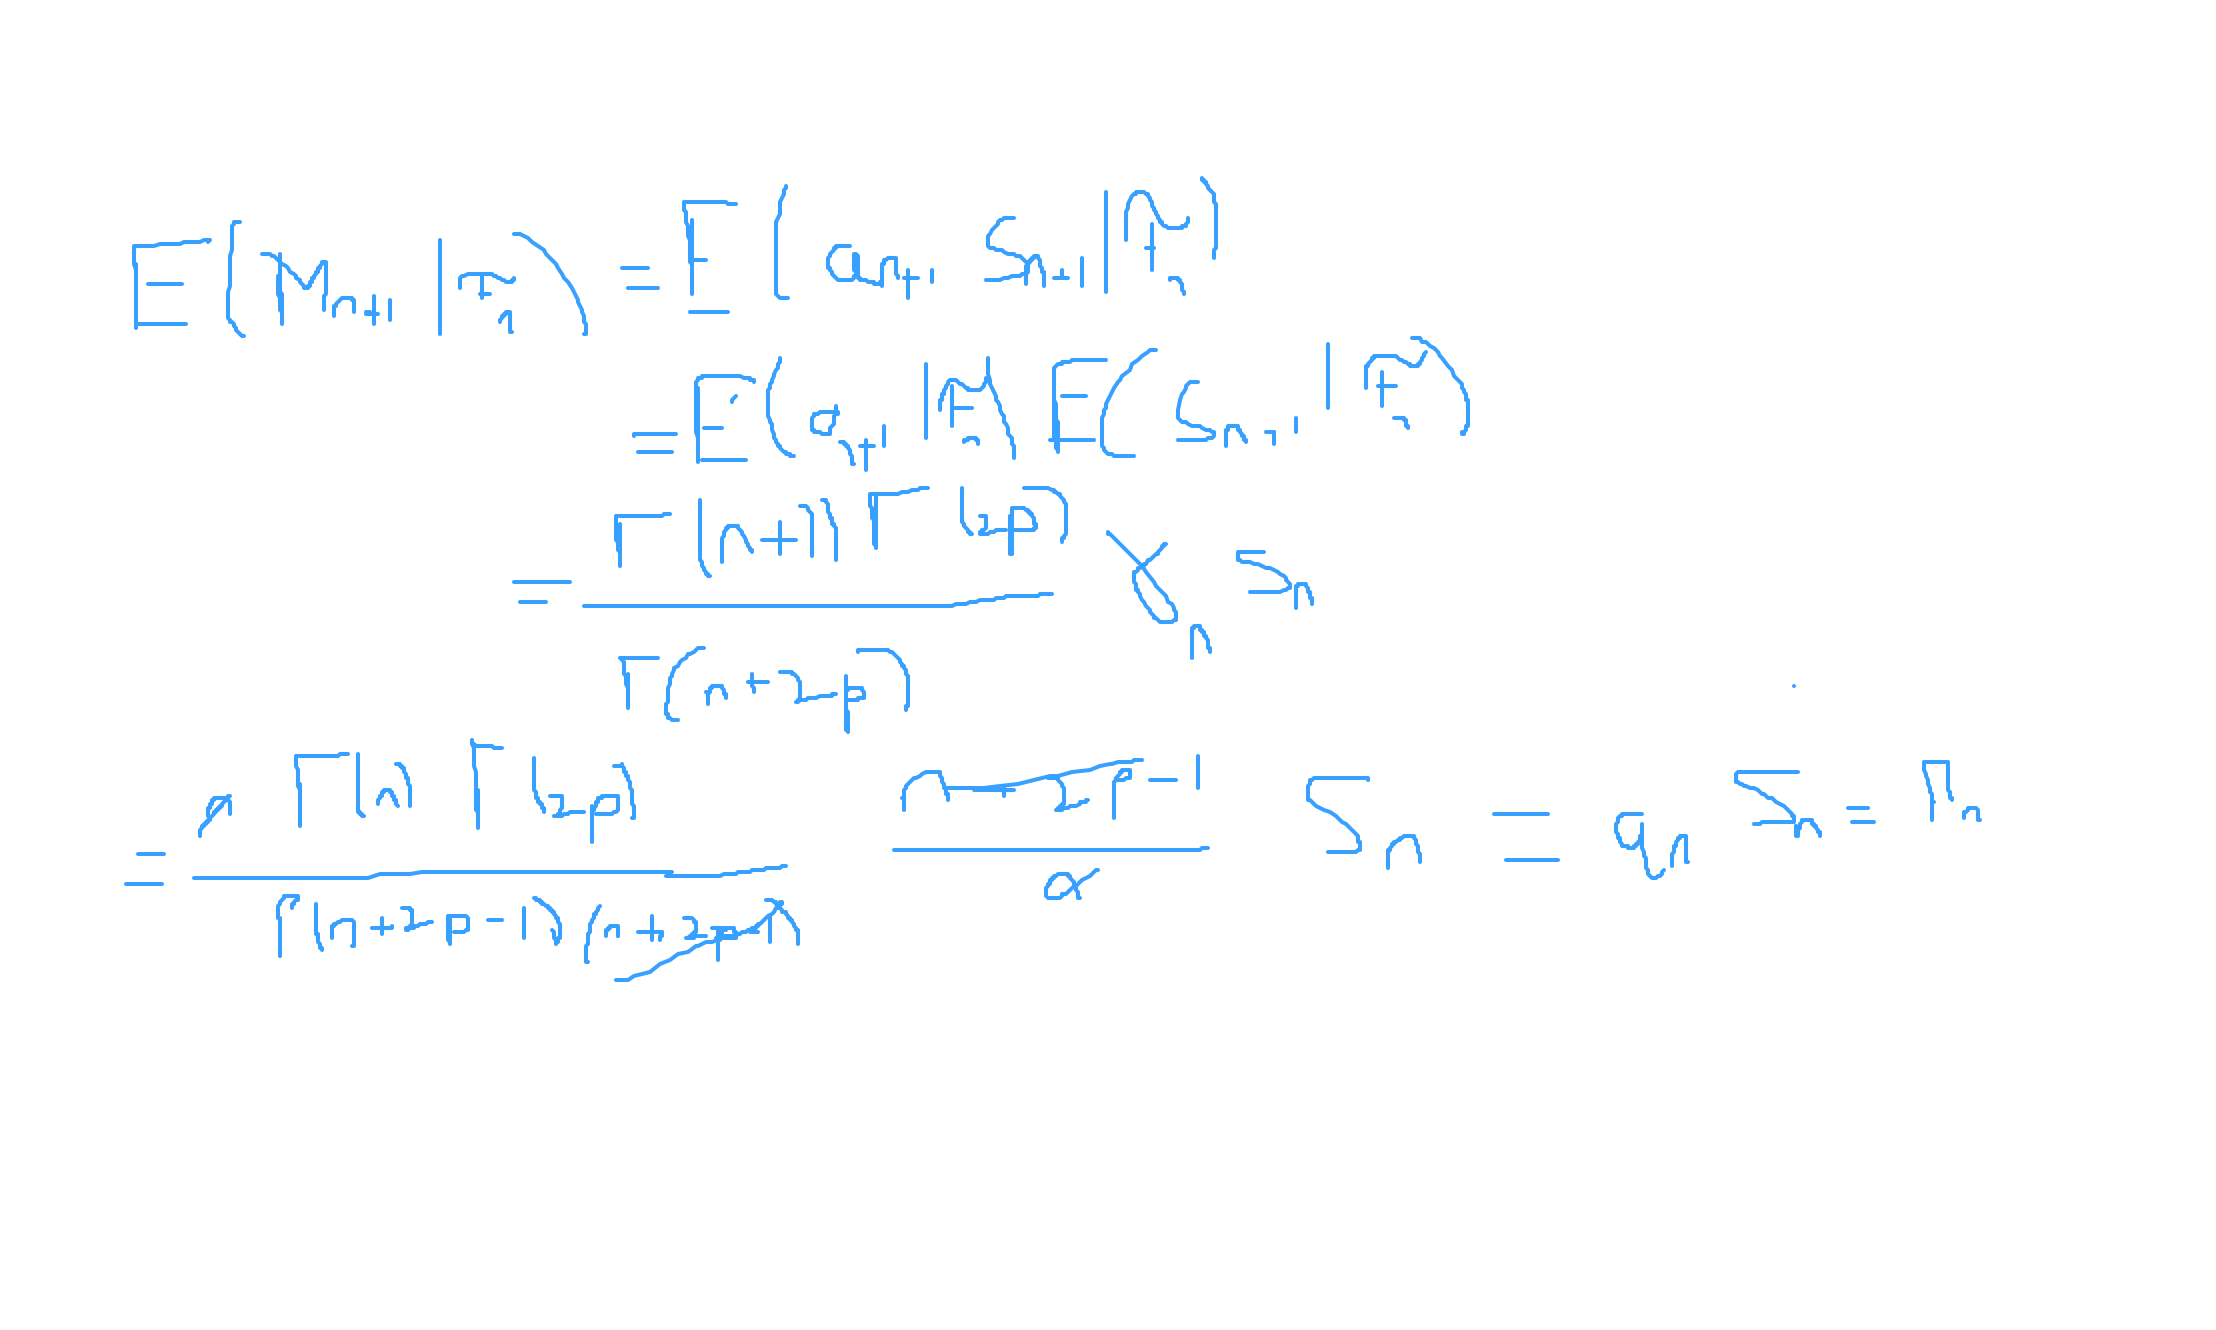 E(M_{n+1} | F_n) = E(a_{n+1} S_{n+1} | F_n)
= E(a_{n+1} | F_n) E(S_{n+1} | F_n)
= Γ(n+1) Γ(2p) / Γ(n+2p) γ_n S_n
= n Γ(n) Γ(2p) / Γ(n+2p-1)(n+2p-1) (n+2p-1)/n S_n = a_n S_n = M_n